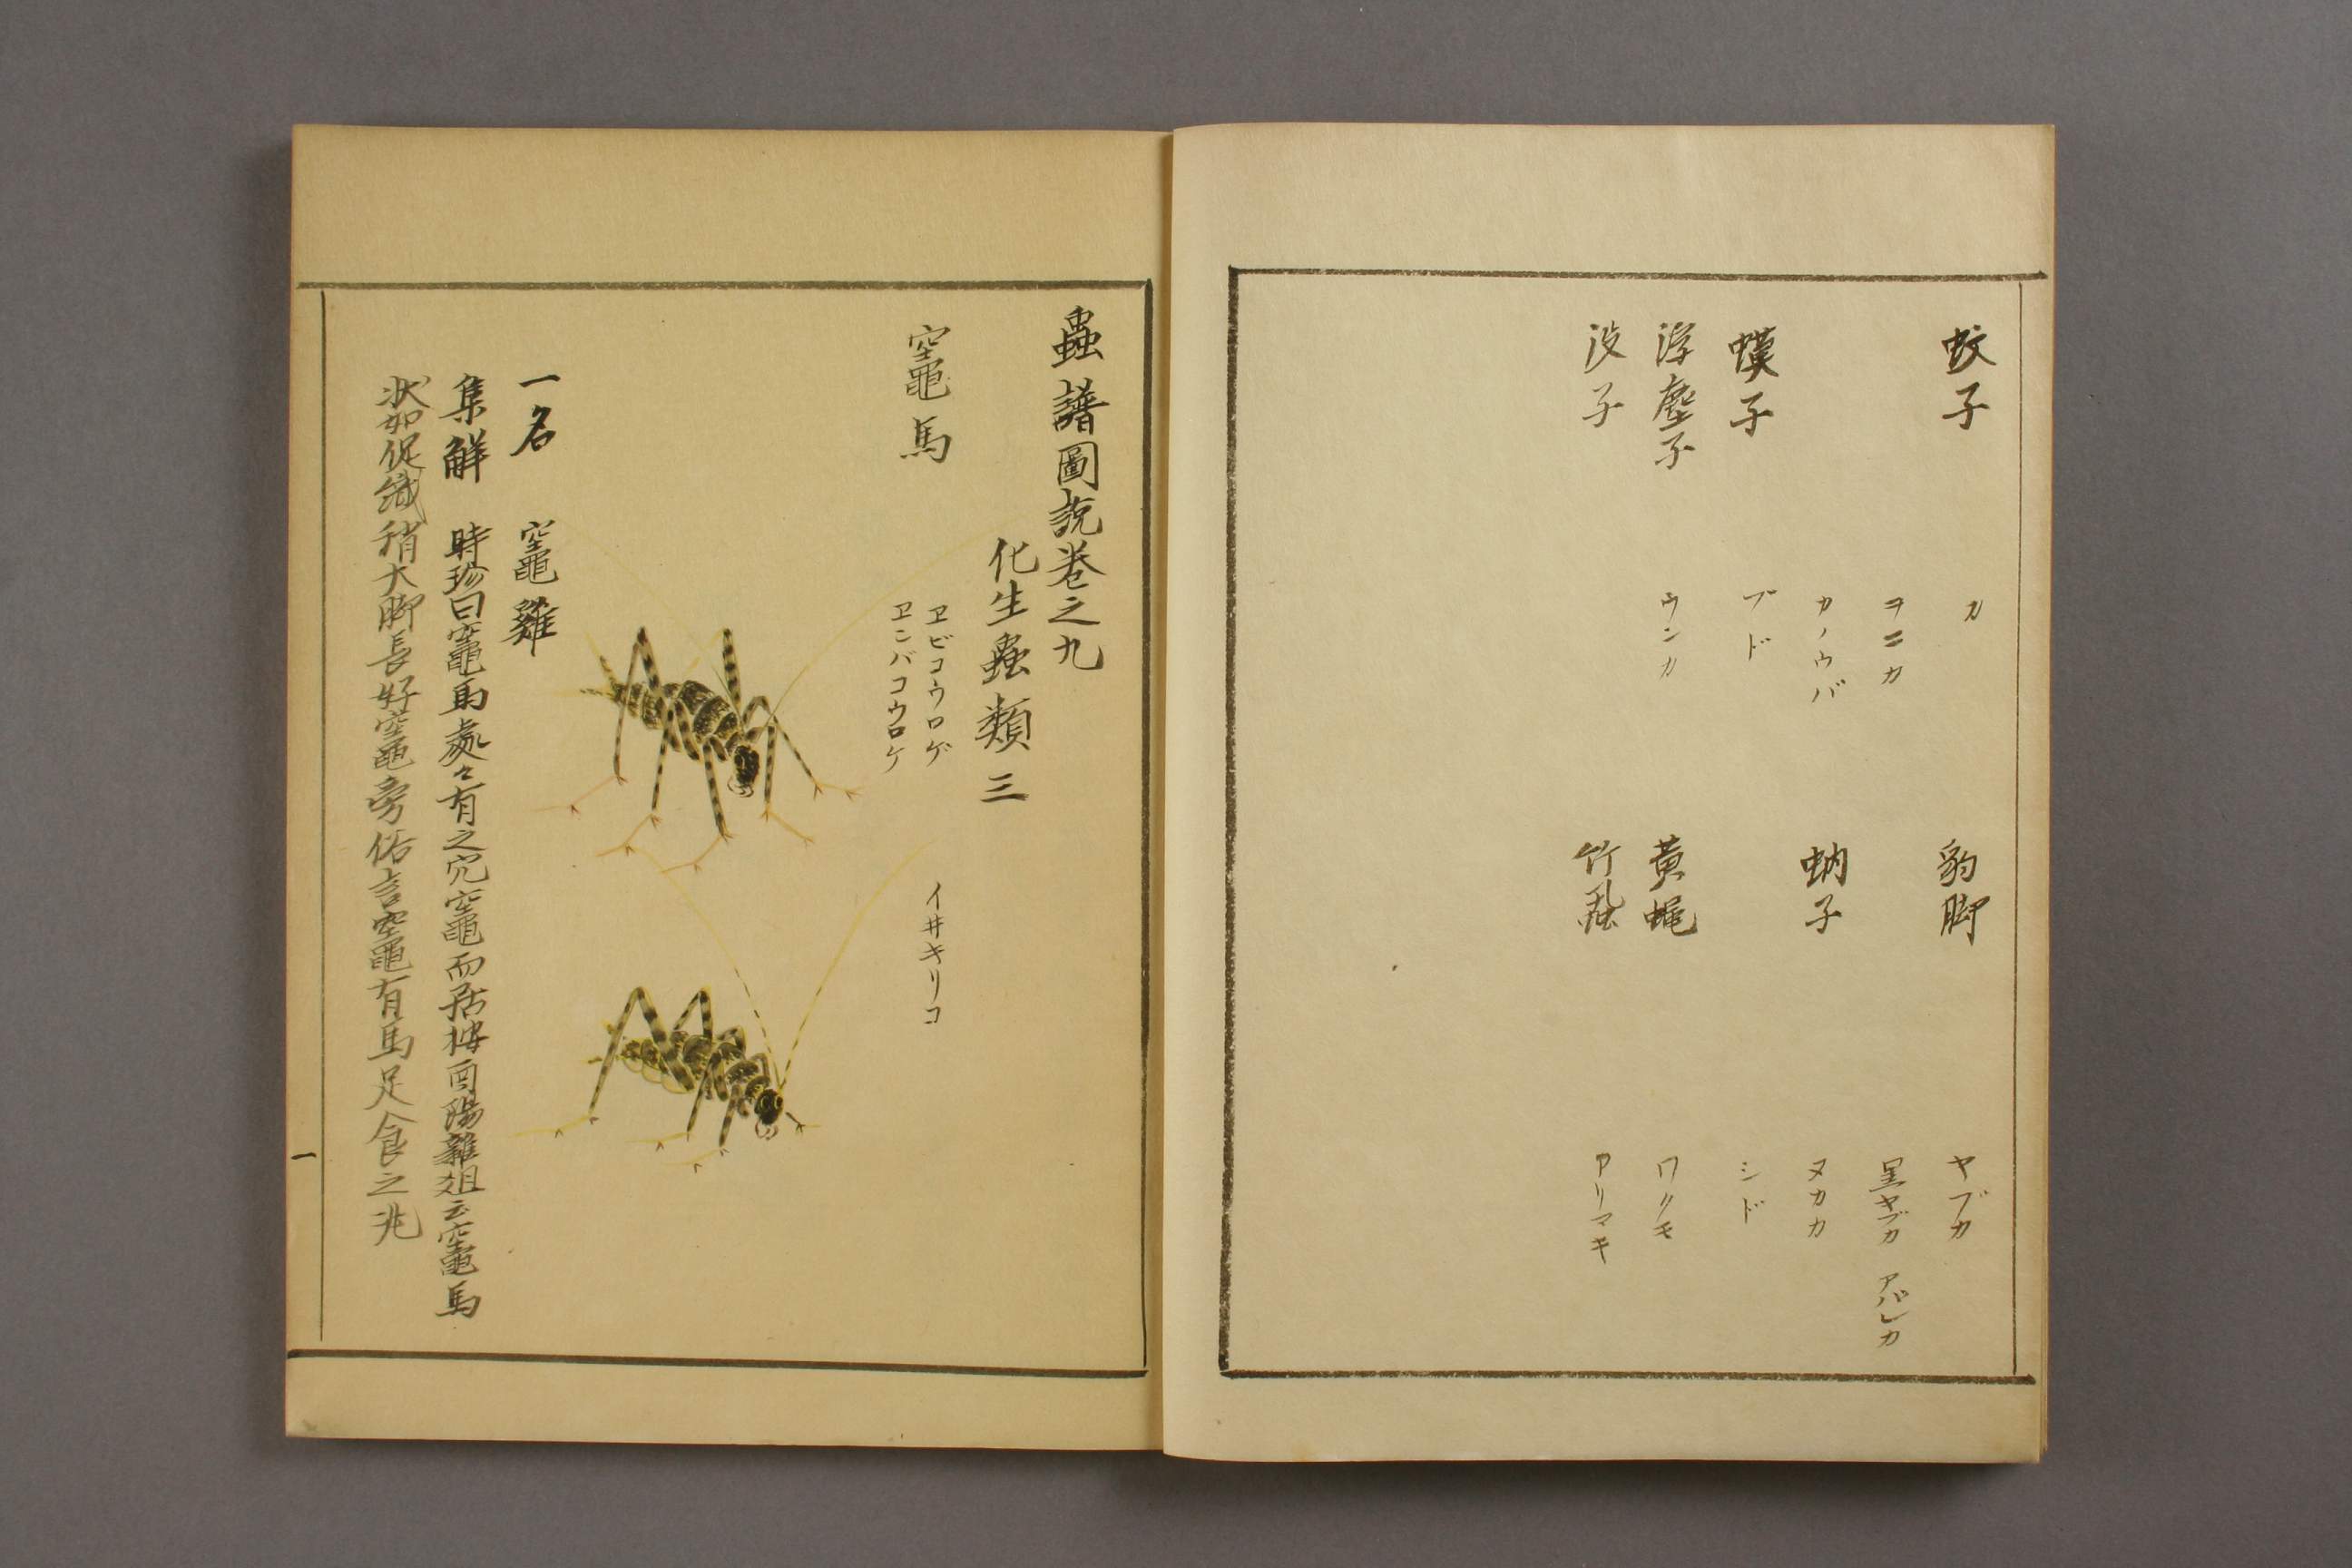 蚊子 カ 豹脚 ヤブカ
ヲニカ 黒ヤブカ アバレカ
カノウバ 蚋子 ヌカカ
蟆子 ブド シド
浮塵子 ウンカ 黄蝇 ワクモ
没子 竹蝨 アリマキ
蟲譜圖説卷之九
化生蟲類三
竈馬 ヱビコウロゲ イ井キリコ
ヱンバコウロケ
一名 竈雞
集解 時珍曰竈馬處々有之穴竈而居按酉陽雜俎云竈馬
状如促織稍大脚長好竈旁俗言竈有馬足食之兆
一